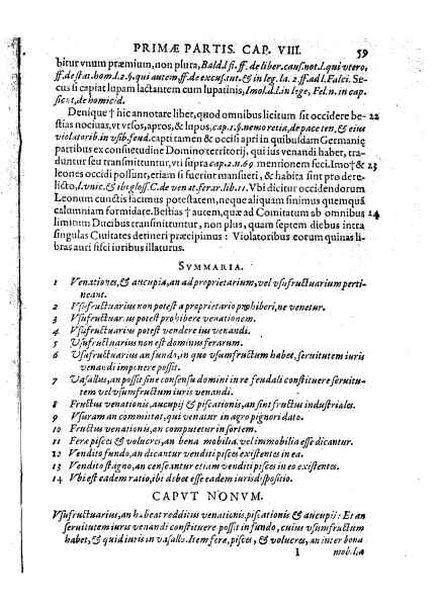 PRIMÆ PARTIS. CAP. VIII. 59
bitur vnum præmium, non plura, Bald. l. si. ff. de liber. caus. not. l. qui vtero,
ff. de stat. hom. l. 2. §. qui autem, ff. de excus. tut. & in leg. la. 2. ff. ad l. Falci. Se-
cus si capiat lupam lactantem cum lupatinis, Imol. d. l. in lege, Fel. n. in cap.
sicut, de homicid.
Denique † hic annotare liber, quod omnibus licitum sit occidere be- 22
stias nociuas, vt vrsos, apros, & lupos, cap. 1. §. nemo retia, de pace ten, & eius
violatorib. in vsib. feud. capti tamen & occisi apri in quibusdam Germaniæ
partibus ex consuetudine Domino territorij, qui ius venandi habet, tra-
duntur seu transmittuntur, vti supra cap. 2. n. 69 mentionem feci. Imo † & 23
leones occidi possunt, etiam si fuerint mansueti, & habita sint pro dere-
licto, l. vnic. & ibe gloss. C. de venat. ferar. lib. 11. Vbi dicitur occidendorum
Leonum cunctis facimus potestatem, neque aliquam sinimus quemquā
calumniam formidare. Bestias † autem, quæ ad Comitatum ab omnibus 24
limitum Ducibus transmittuntur, non plus, quam septem diebus intra
singulas Ciuitates detineri præcipimus : Violatoribus eorum quinas li-
bras auri fisci iuribus illaturus.
SVMMARIA.
1 Venationes, & aucupia, an ad proprietarium, vel vsufructuarium perti-
neant.
2 Vsufructuarius non potest a proprietario prohiberi, ne venetur.
3 Vsufructuarius potest prohibere venationem.
4 Vsufructuarius potest vendere ius venandi.
5 Vsufructuarius non est dominus ferarum.
6 Vsufructuarius an fundo, in quo vsumfructum habet, seruitutem iuris
venandi imponere possit.
7 Vasallus, an possit sine consensu domini in re feudali constituere seruitu-
tem vel vsumfructum iuris venandi.
8 Fructus venationis, aucupij & piscationis, an sint fructus industriales.
9 Vsuram an committat, qui venatur in agro pignori dato.
10 Fructus venationis, an computetur in sortem.
11 Feræ pisces & volucres, an bona mobilia vel immobilia esse dicantur.
12 Vendito fundo, an dicantur venditi pisces existentes in ea.
13 Vendito stagno, an censeantur etiam venditi pisces in eo existentes.
14 Vbi est eadem ratio, ibi debet esse eadem iurisdispositio.
CAPVT NONVM.
Vsufructuarius, an habeat redditus venationis, piscationis & aucupij : Et an
seruitutem iuris venandi constituere possit in fundo, cuius vsumfructum
habet, & quid iuris in vasallo. Item feræ, pisces, & volucres, an inter bona
I mobilia